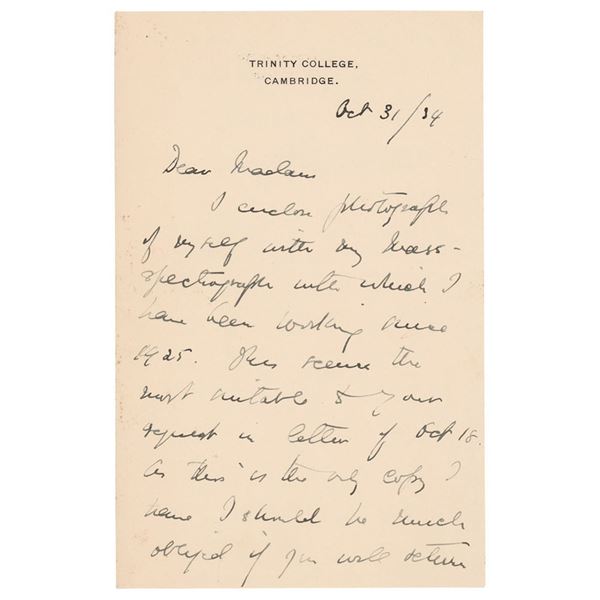 TRINITY COLLEGE,
CAMBRIDGE.
Oct 31/34
Dear Madam
I enclose photograph
of myself with my Mass-
spectrograph with which I
have been working since
1925. This seems the
most suitable to your
request in letter of Oct 18.
As this is the only copy I
have I should be much
obliged if you will return